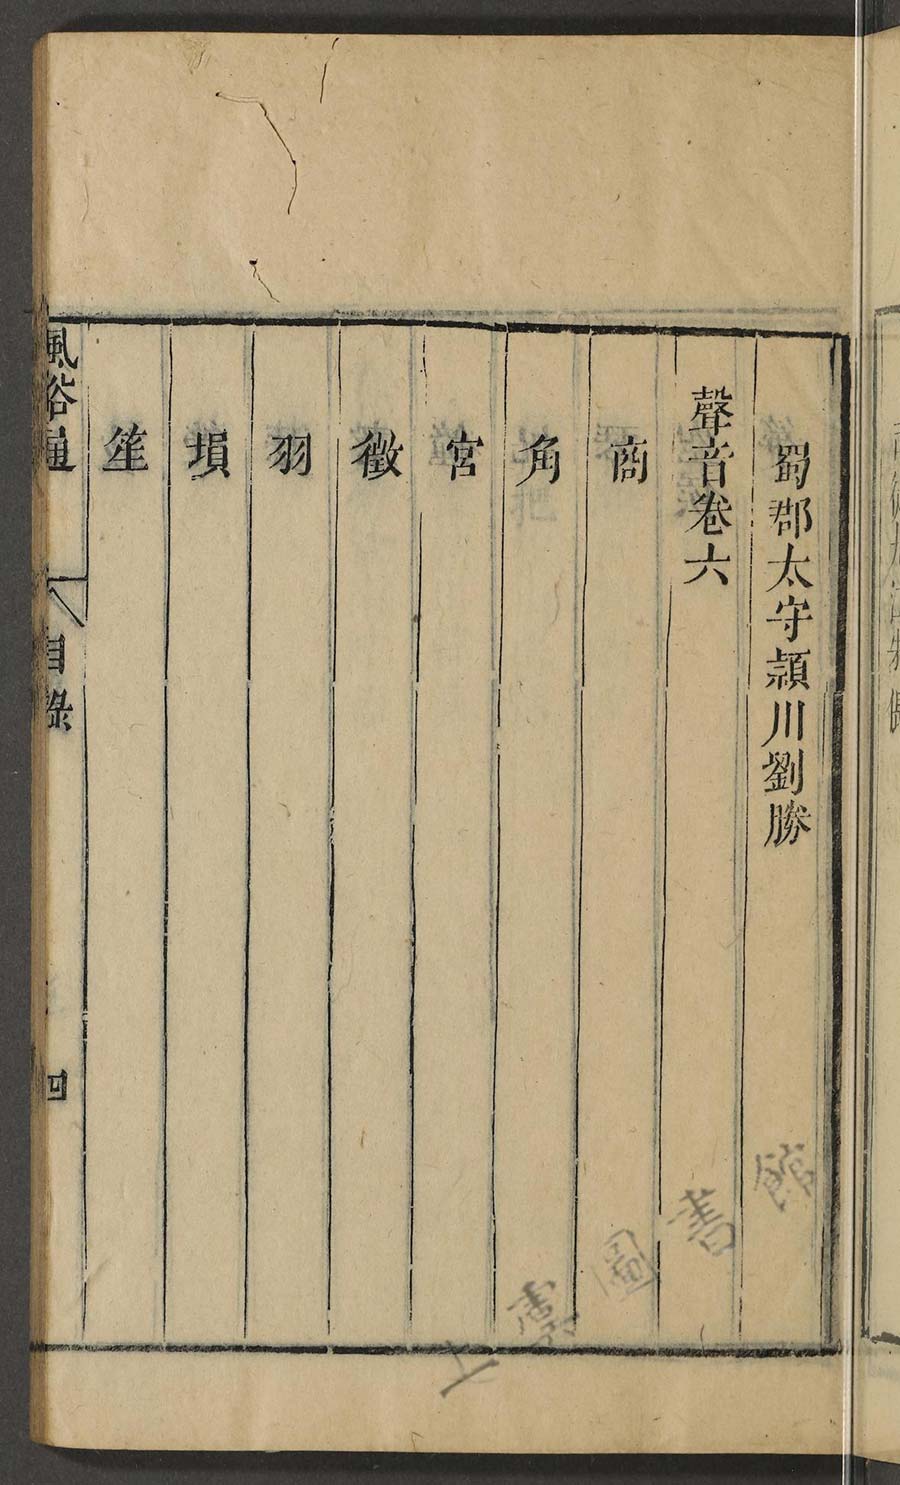 蜀郡太守潁川劉勝
聲音卷六
商
角
宮
徵
羽
塤
笙
風俗通
目錄
四
士禮圖書館